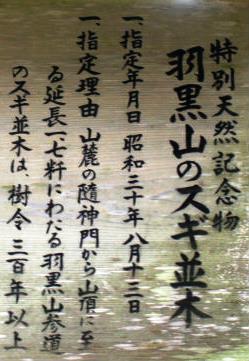 特別天然記念物
羽黒山のスギ並木
一、指定年月日 昭和三十年八月十三日
一、指定理由 山麓の随神門から山頂に至
る延長一、七粁にわたる羽黒山参道
のスギ並木は、樹令 三百年以上